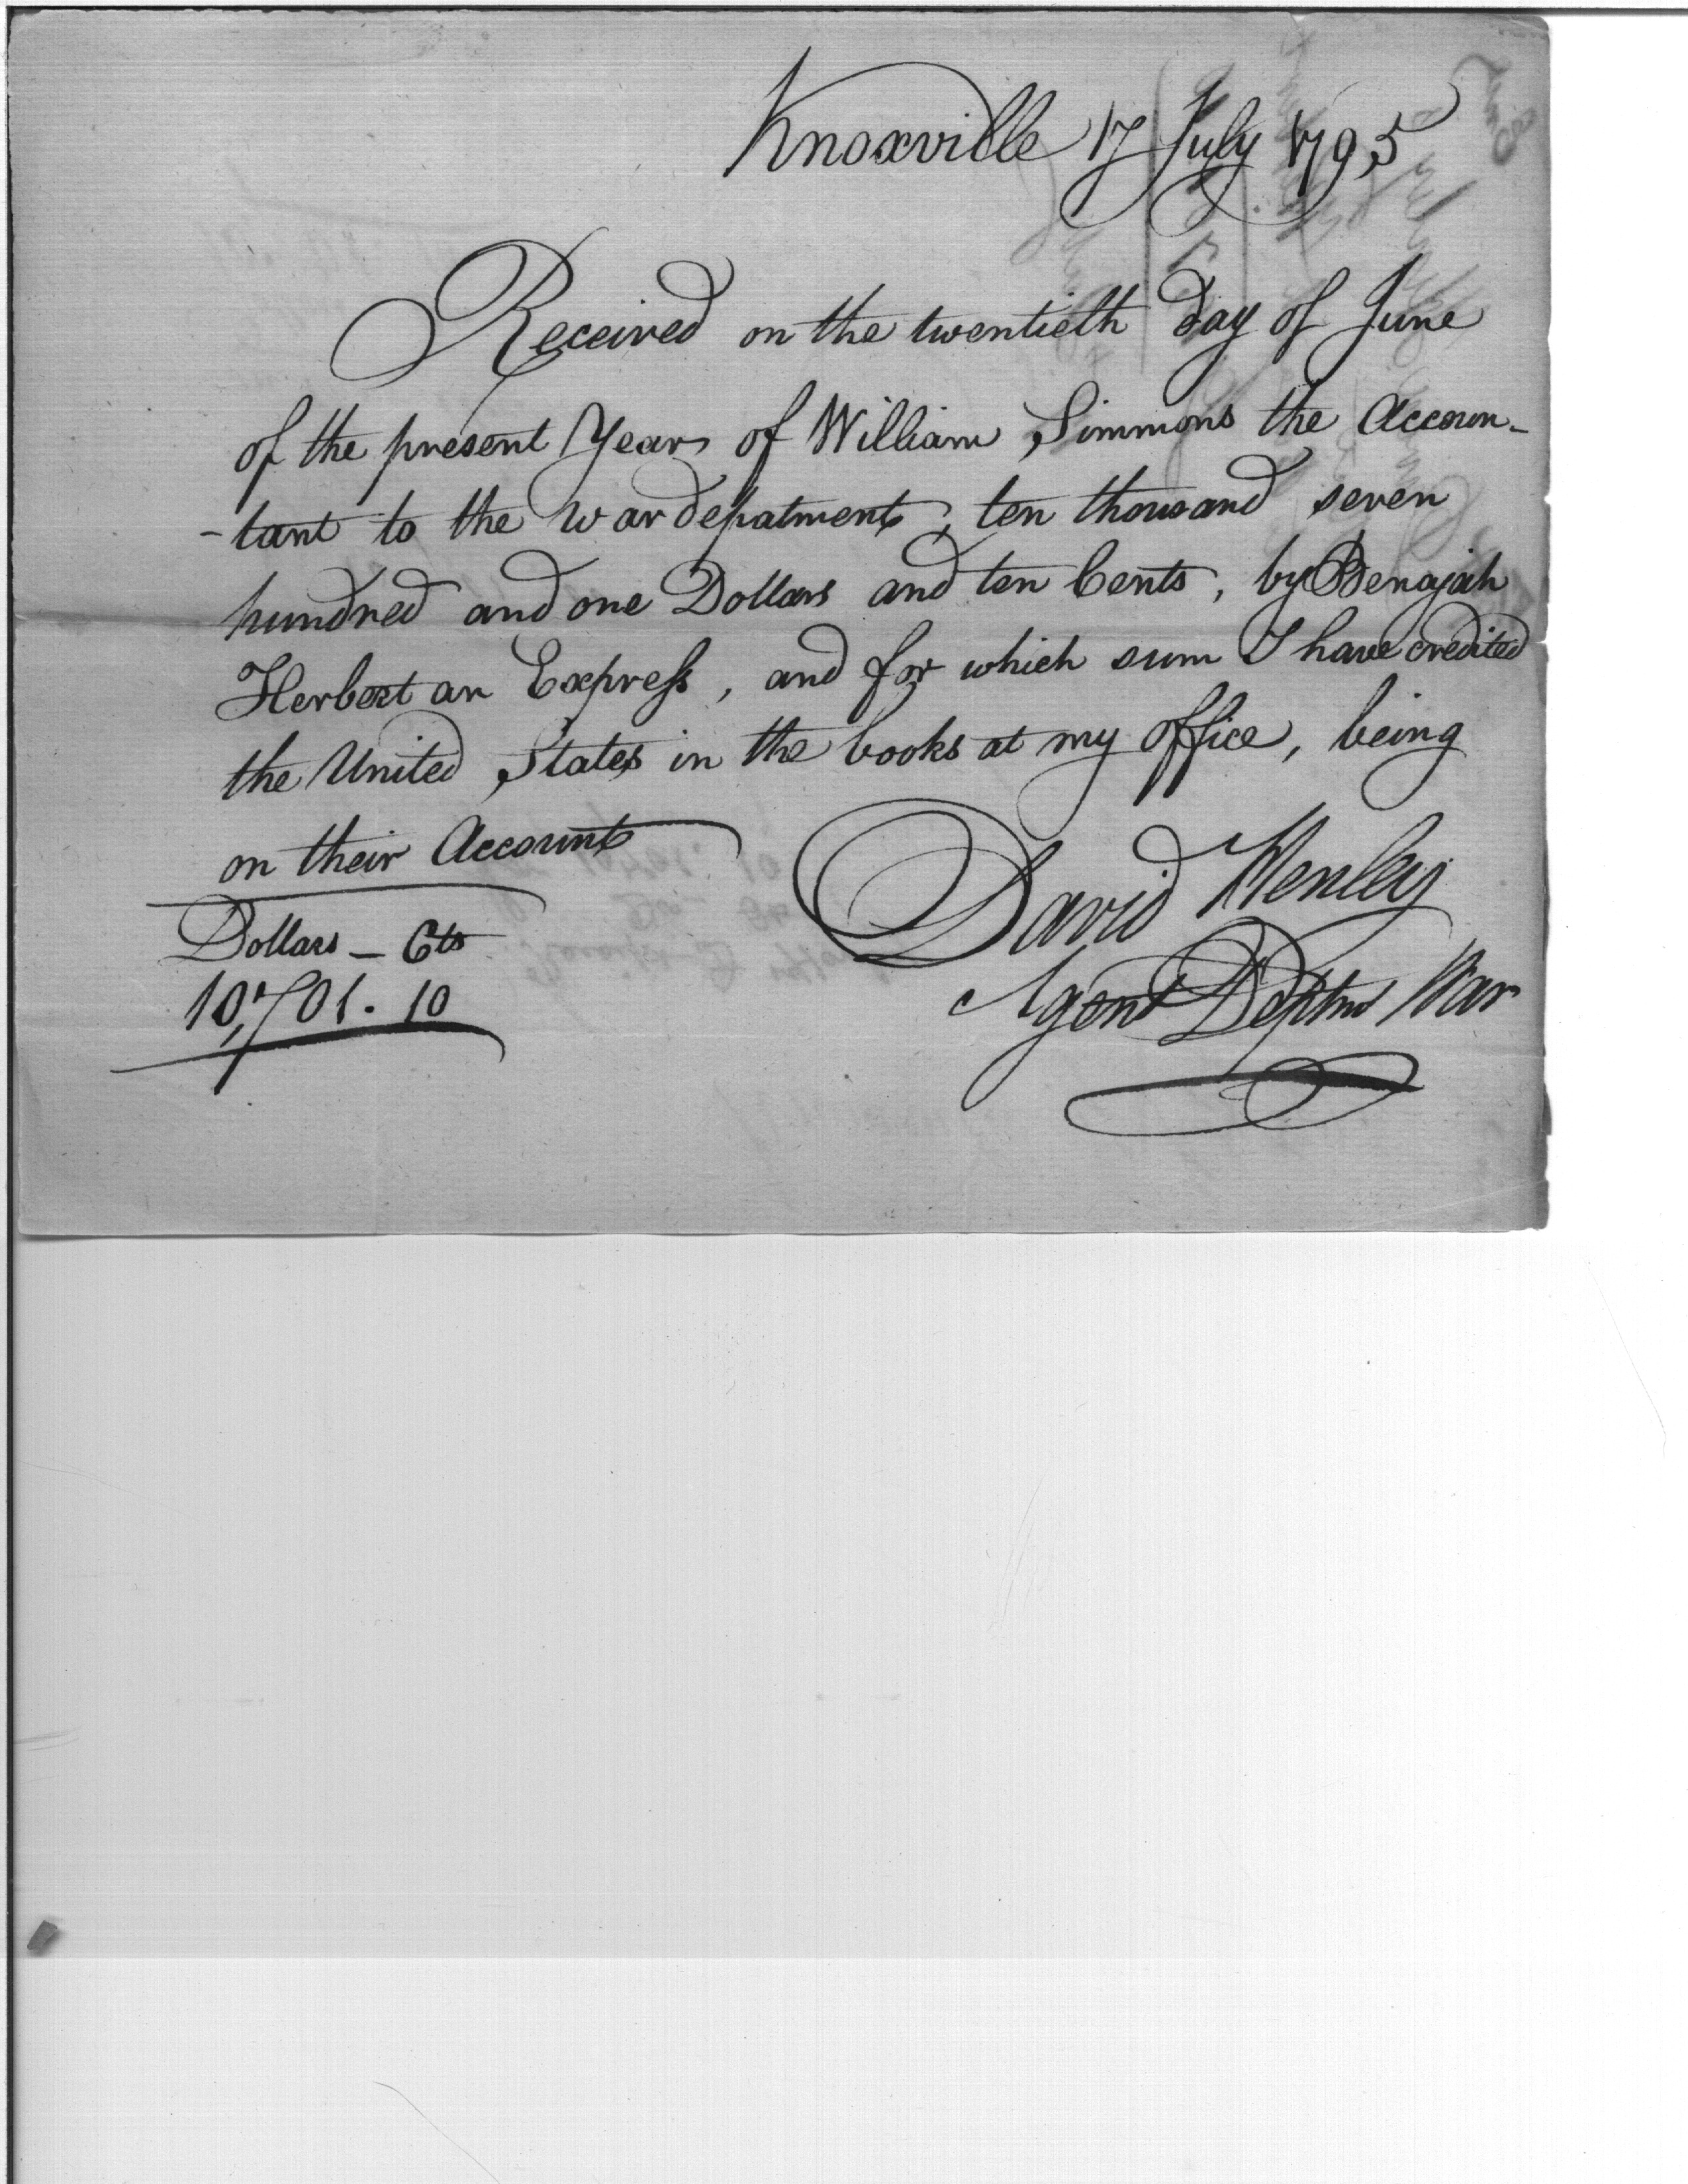 Knoxville 17 July 1795
Received on the twentieth day of June
of the present Year of William Simmons the Accoun-
-tant to the War depatment, ten thousand seven
hundred and one Dollars and ten Cents, by Benajah
Herbert an Express, and for which sum I have credited
the United States in the books at my office, being
on their Account
David Henley
Agent Deptm War
Dollars - Cts
10,701. 10